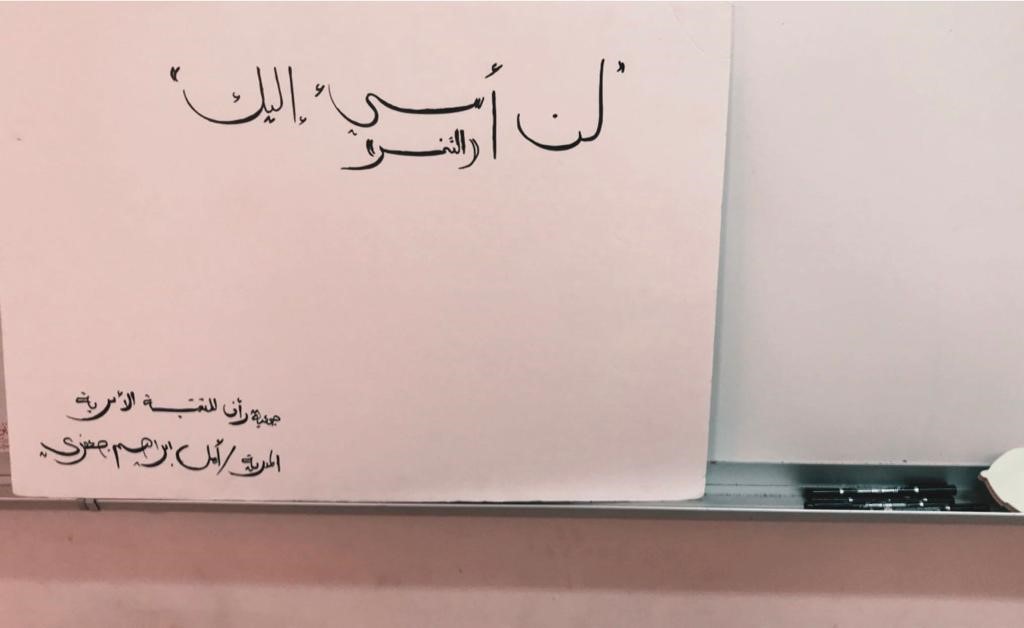 "لن أسيء إليك"
((التنمر))
جمعية رأف للتنمية الأسرية
المدربة/أمل ابراهيم جعفري